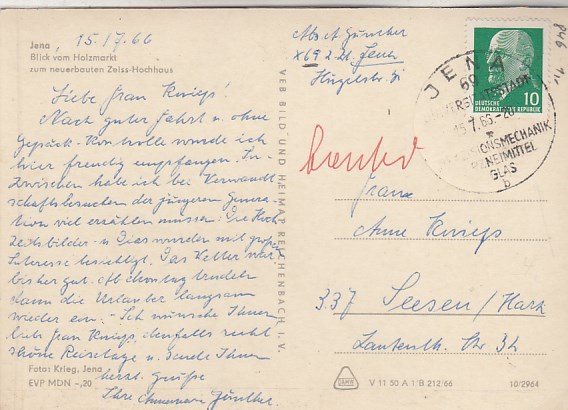 Jena, 15./7.66
Blick vom Holzmarkt
zum neuerbauten Zeiss-Hochhaus
Liebe Frau Knieps!
Nach guter Fahrt u. ohne
Gepäck-Kontrolle wurde ich
hier freudig empfangen. In-
zwischen habe ich bei Verwandt-
schaftsbesuchen der jüngeren Genera-
tion viel erzählen müssen. Die Hoch-
zeitsbilder u. Dias wurden mit großem
Interesse besichtigt. Das Wetter war
bisher gut. Ab Montag trudeln
dann die Urlauber langsam
wieder ein. - Ich wünsche Ihnen
liebe Frau Knieps, ebenfalls recht
schöne Reisetage u. sende Ihnen
herzl. Grüße
Ihre Günther.
Foto: Krieg, Jena
EVP MDN -,20
VEB BILD UND HEIMAT REICHENBACH I. V.
Abs. A. Günther
X69 2. 21. Jena
JENA
69
15.7.66-20
GLAS
b
DEUTSCHE
DEMOKRATISCHE REPUBLIK
10
Frau
Anne Knieps
337 Seesen/Harz
Lautenth. Str 32
V 11 50 A 1/B 212/66
10/2964